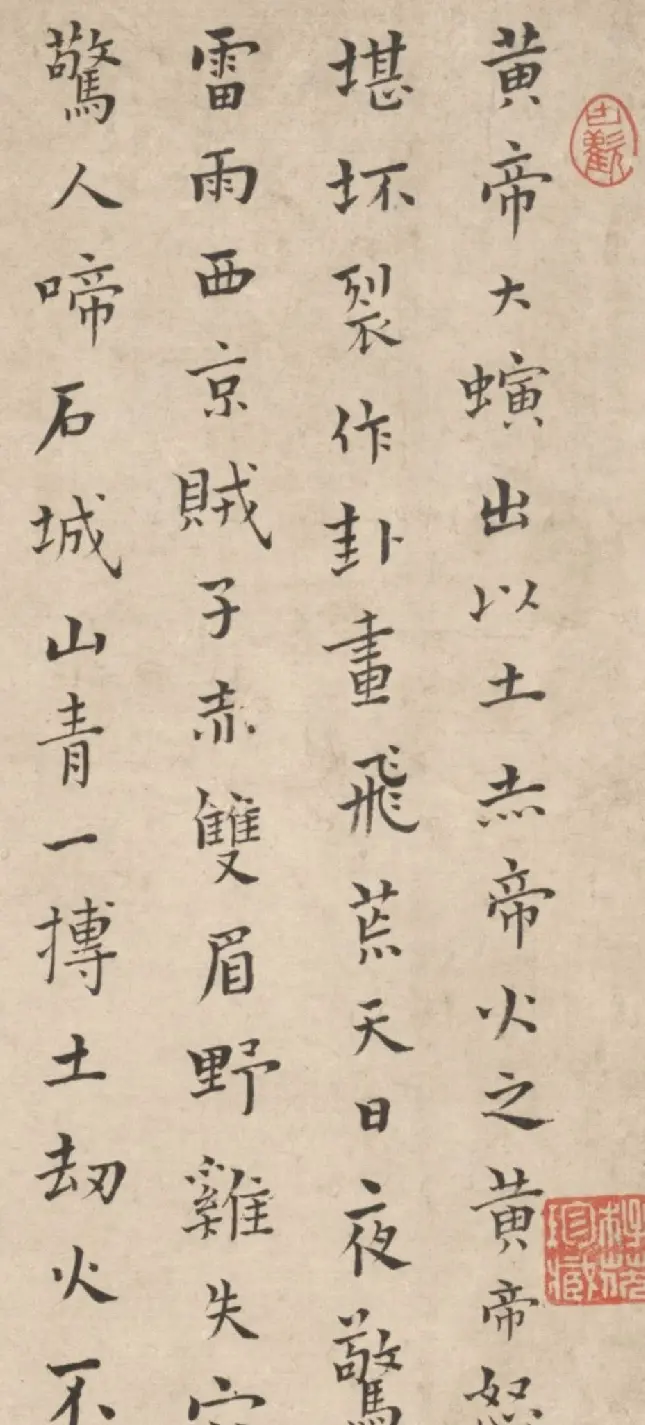 黄帝大螾出以土炁帝火之黄帝怒
堪坏裂作卦畫飛荒天日夜驚
雷雨西京賊子赤雙眉野雞失
驚人啼石城山青一摶土劫火不
珍藏